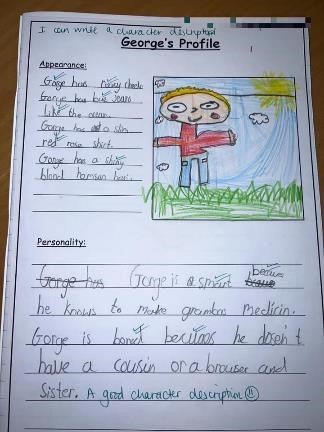 I can write a character description
George's Profile
Appearance:
Gorge has rosey cheeks
Gorge has blue jeans
like the ocean.
Gorge has a slim
red rose shirt.
Gorge has a shiny
blond hair.
Personality:
Gorge has Gorge is a smart
he knows to make grandmas medicin.
Gorge is bored he dosen't
have a cousin or a brouser and
Sister. A good character description